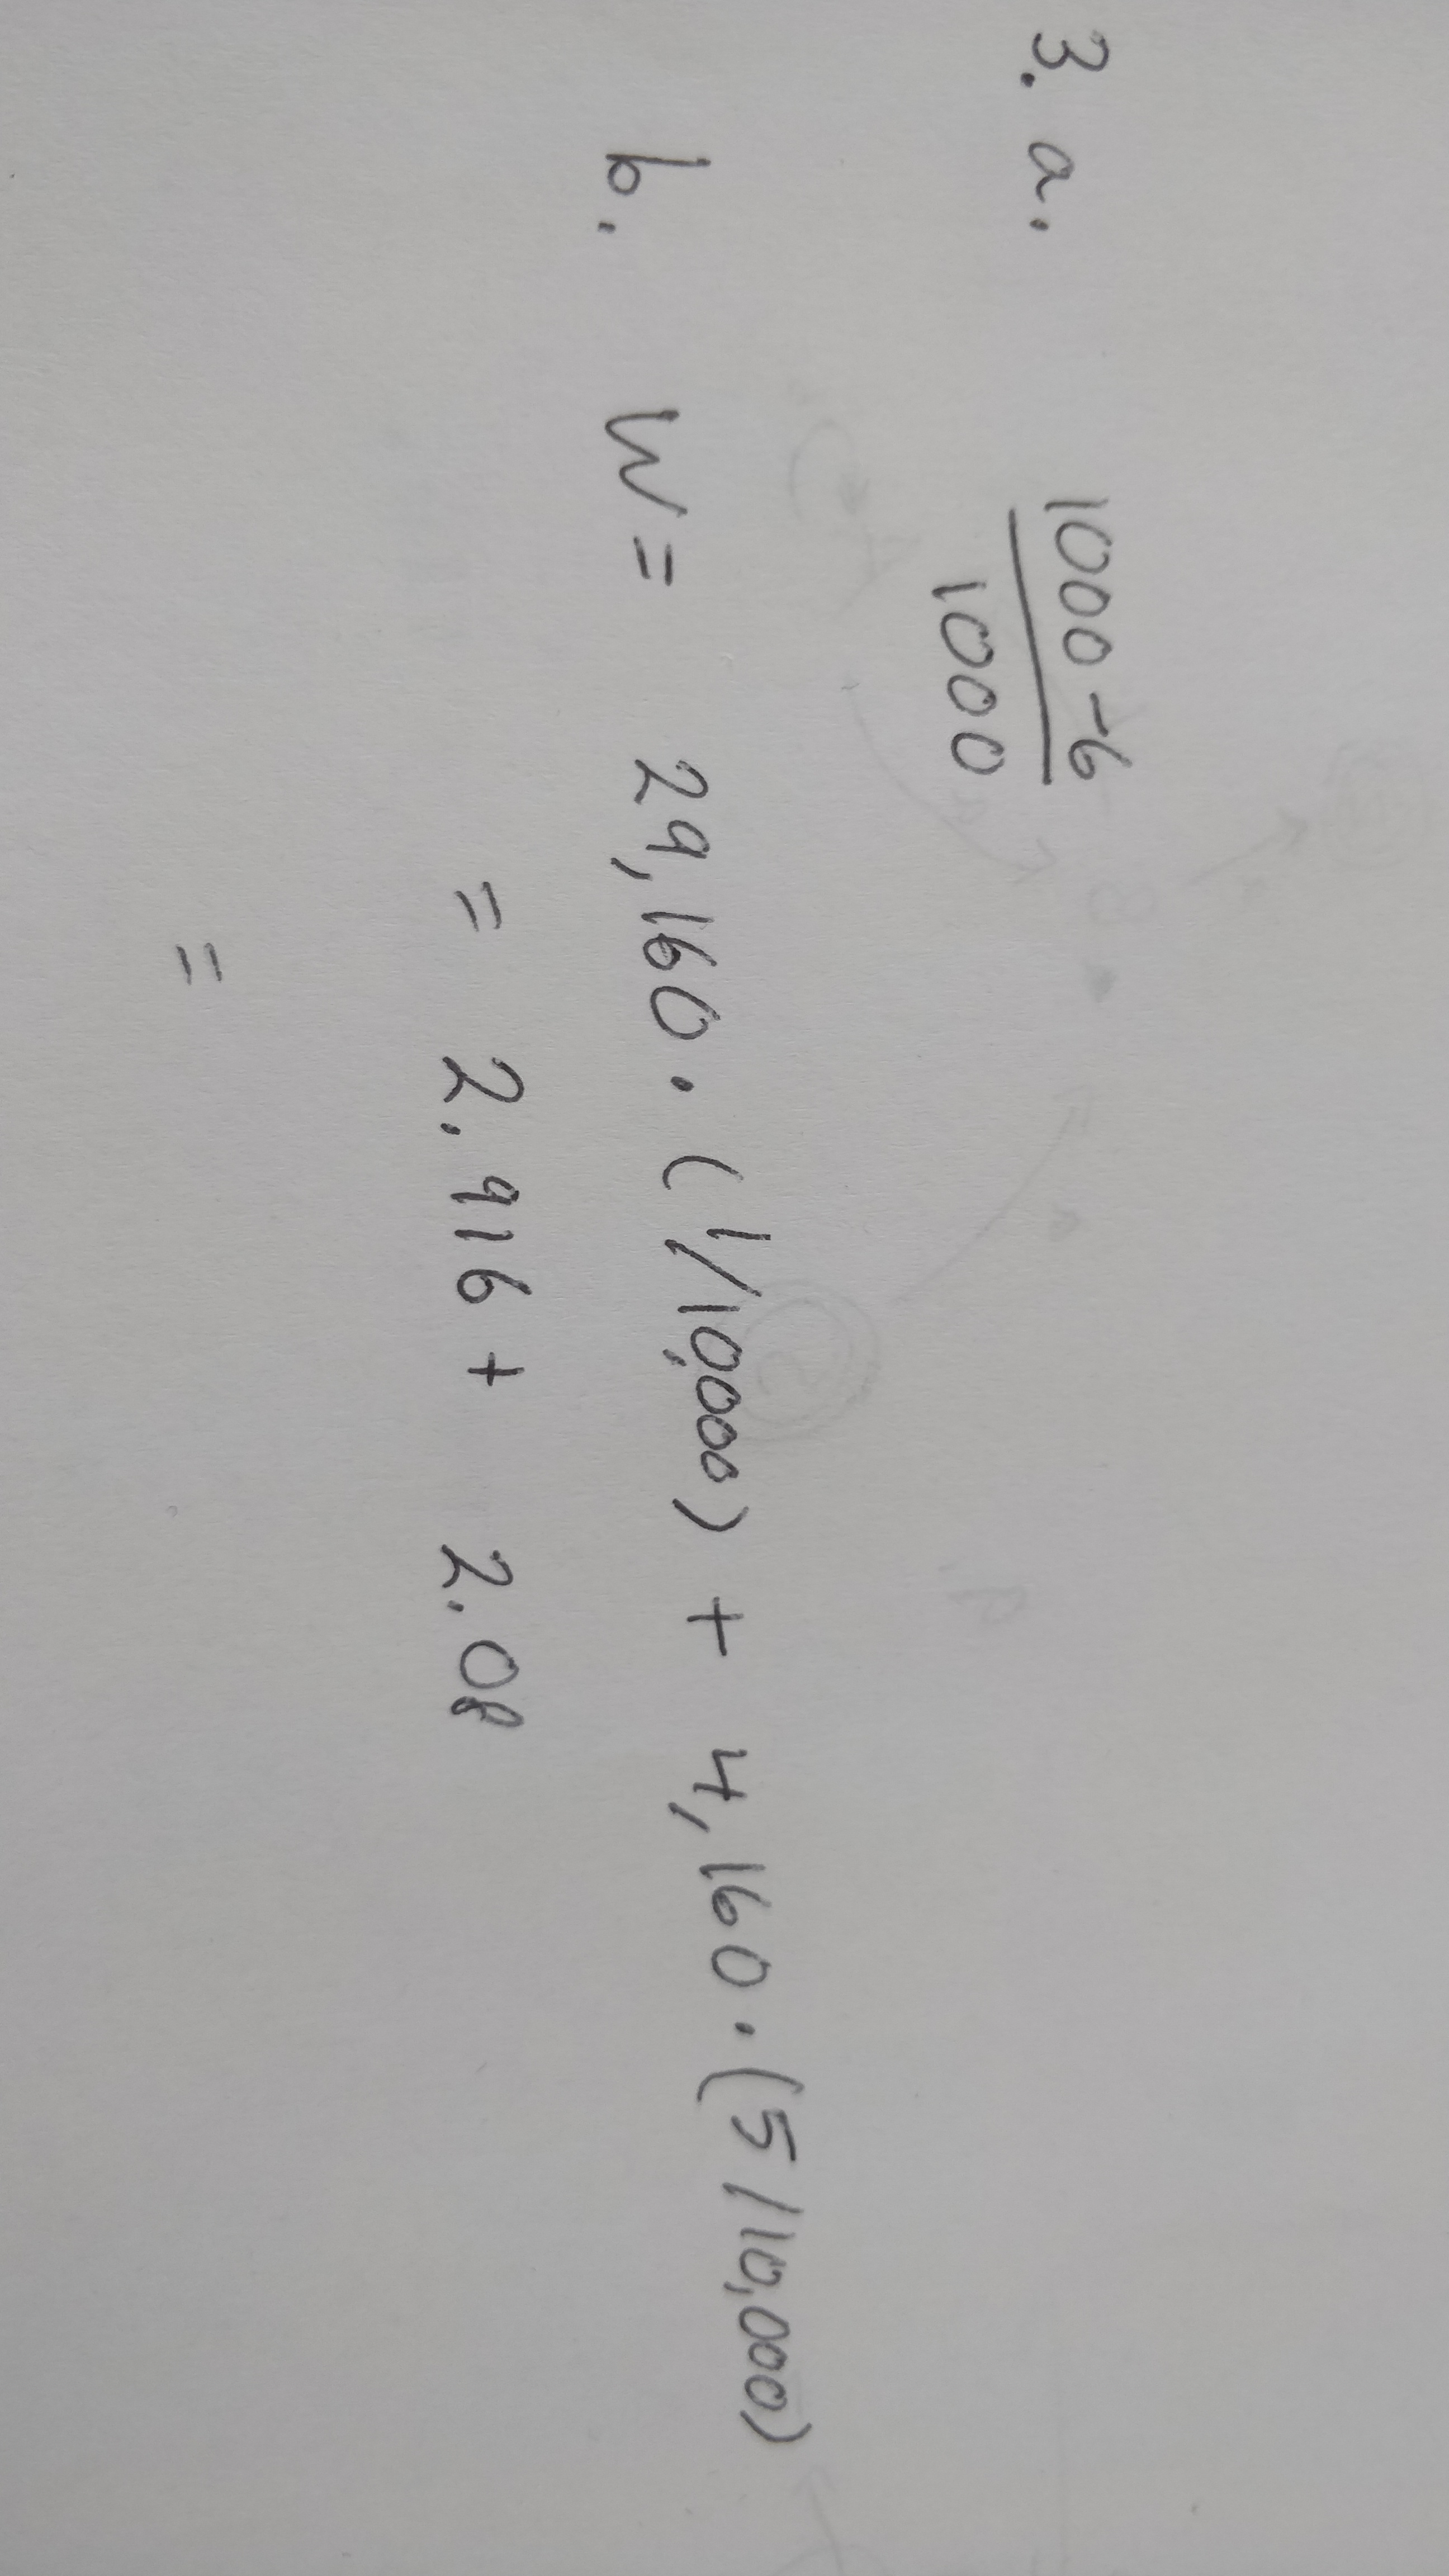 3. a. 1000-6
1000
b. W = 29,160 · (1/10,000) + 4,160 · (5/10,000)
= 2.916 + 2.08
=